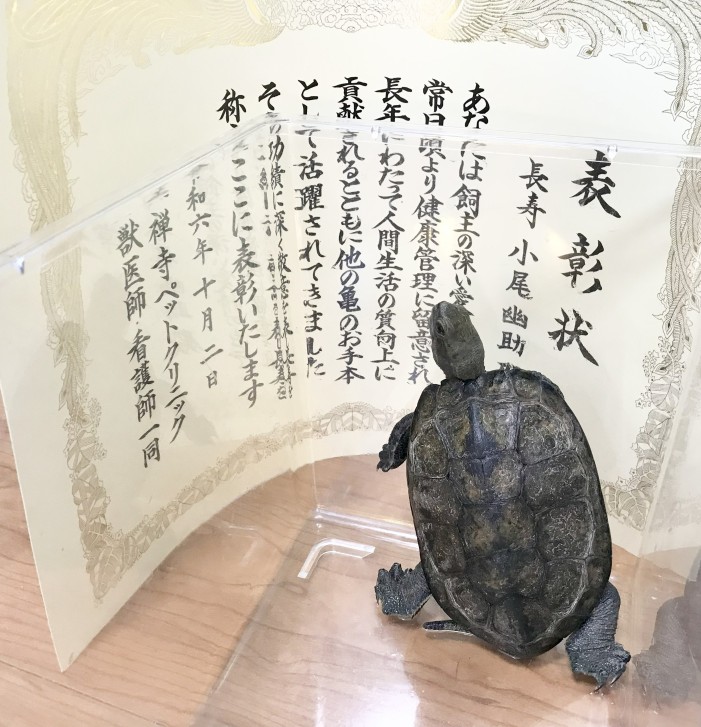 表彰状
長寿 小尾幽助
あなたは飼主の深い愛
常日頃より健康管理に留意され
長年にわたって人間生活の質向上に
貢献されるとともに他の亀のお手本
として活躍されてきました
その功績に深く
称えここに表彰いたします
令和六年十月二日
禅寺ペットクリニック
獣医師・看護師一同